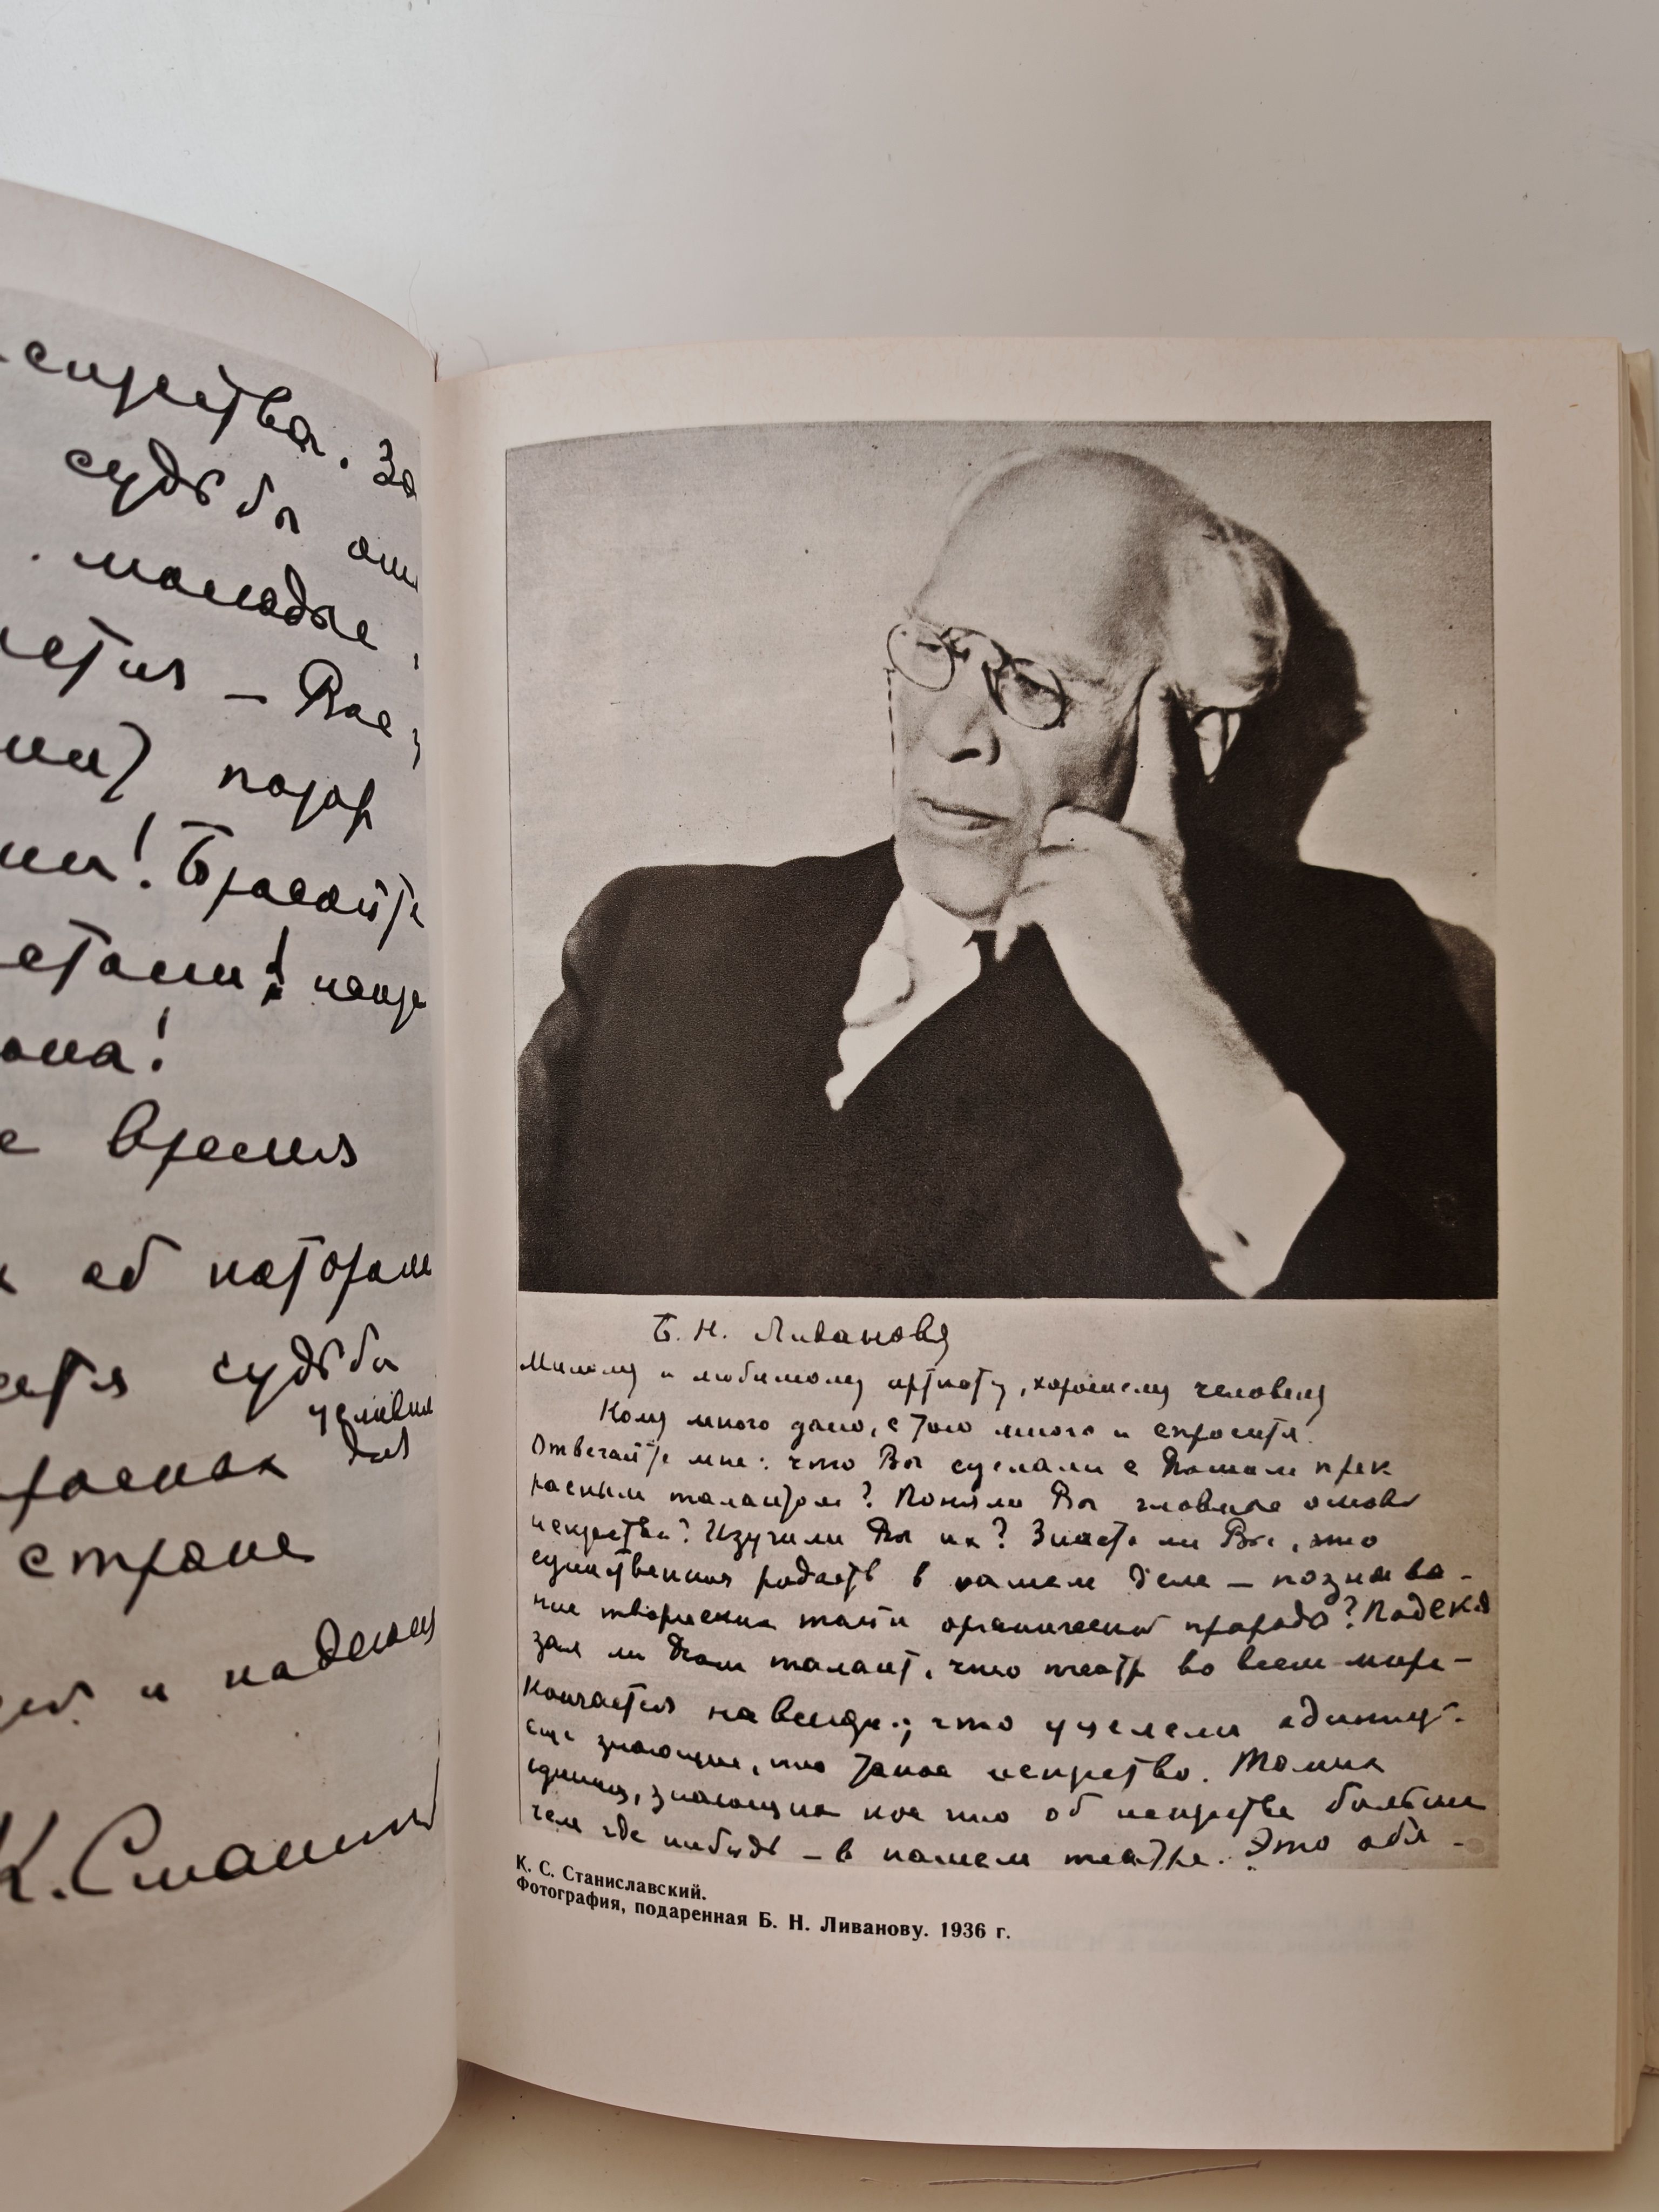 судьбы
молодые
позор
Бросайте
время
об котором
судьба
условия
для
стране
и надежды
Б. Н. Ливанову
Милому и любимому артисту, хорошему человеку
Кому много дано, с того много и спросится.
Отвечайте мне: что Вы сделали с Вашим прек
расным талантом? Поняли Вы главные основы
искусства? Изучили Вы их? Знаете ли Вы, что
единственная радость в нашем деле – познава-
ние творческих тайн органической природы? Подска
зал ли Вам талант, что театр во всем мире –
кончается навсегда; что уцелели единицы
еще знающие, что такое искусство. Только
единиц, знающих кое что об искусстве больше
чем где нибудь – в нашем театре. Это обя-
К. С. Станиславский.
Фотография, подаренная Б. Н. Ливанову. 1936 г.